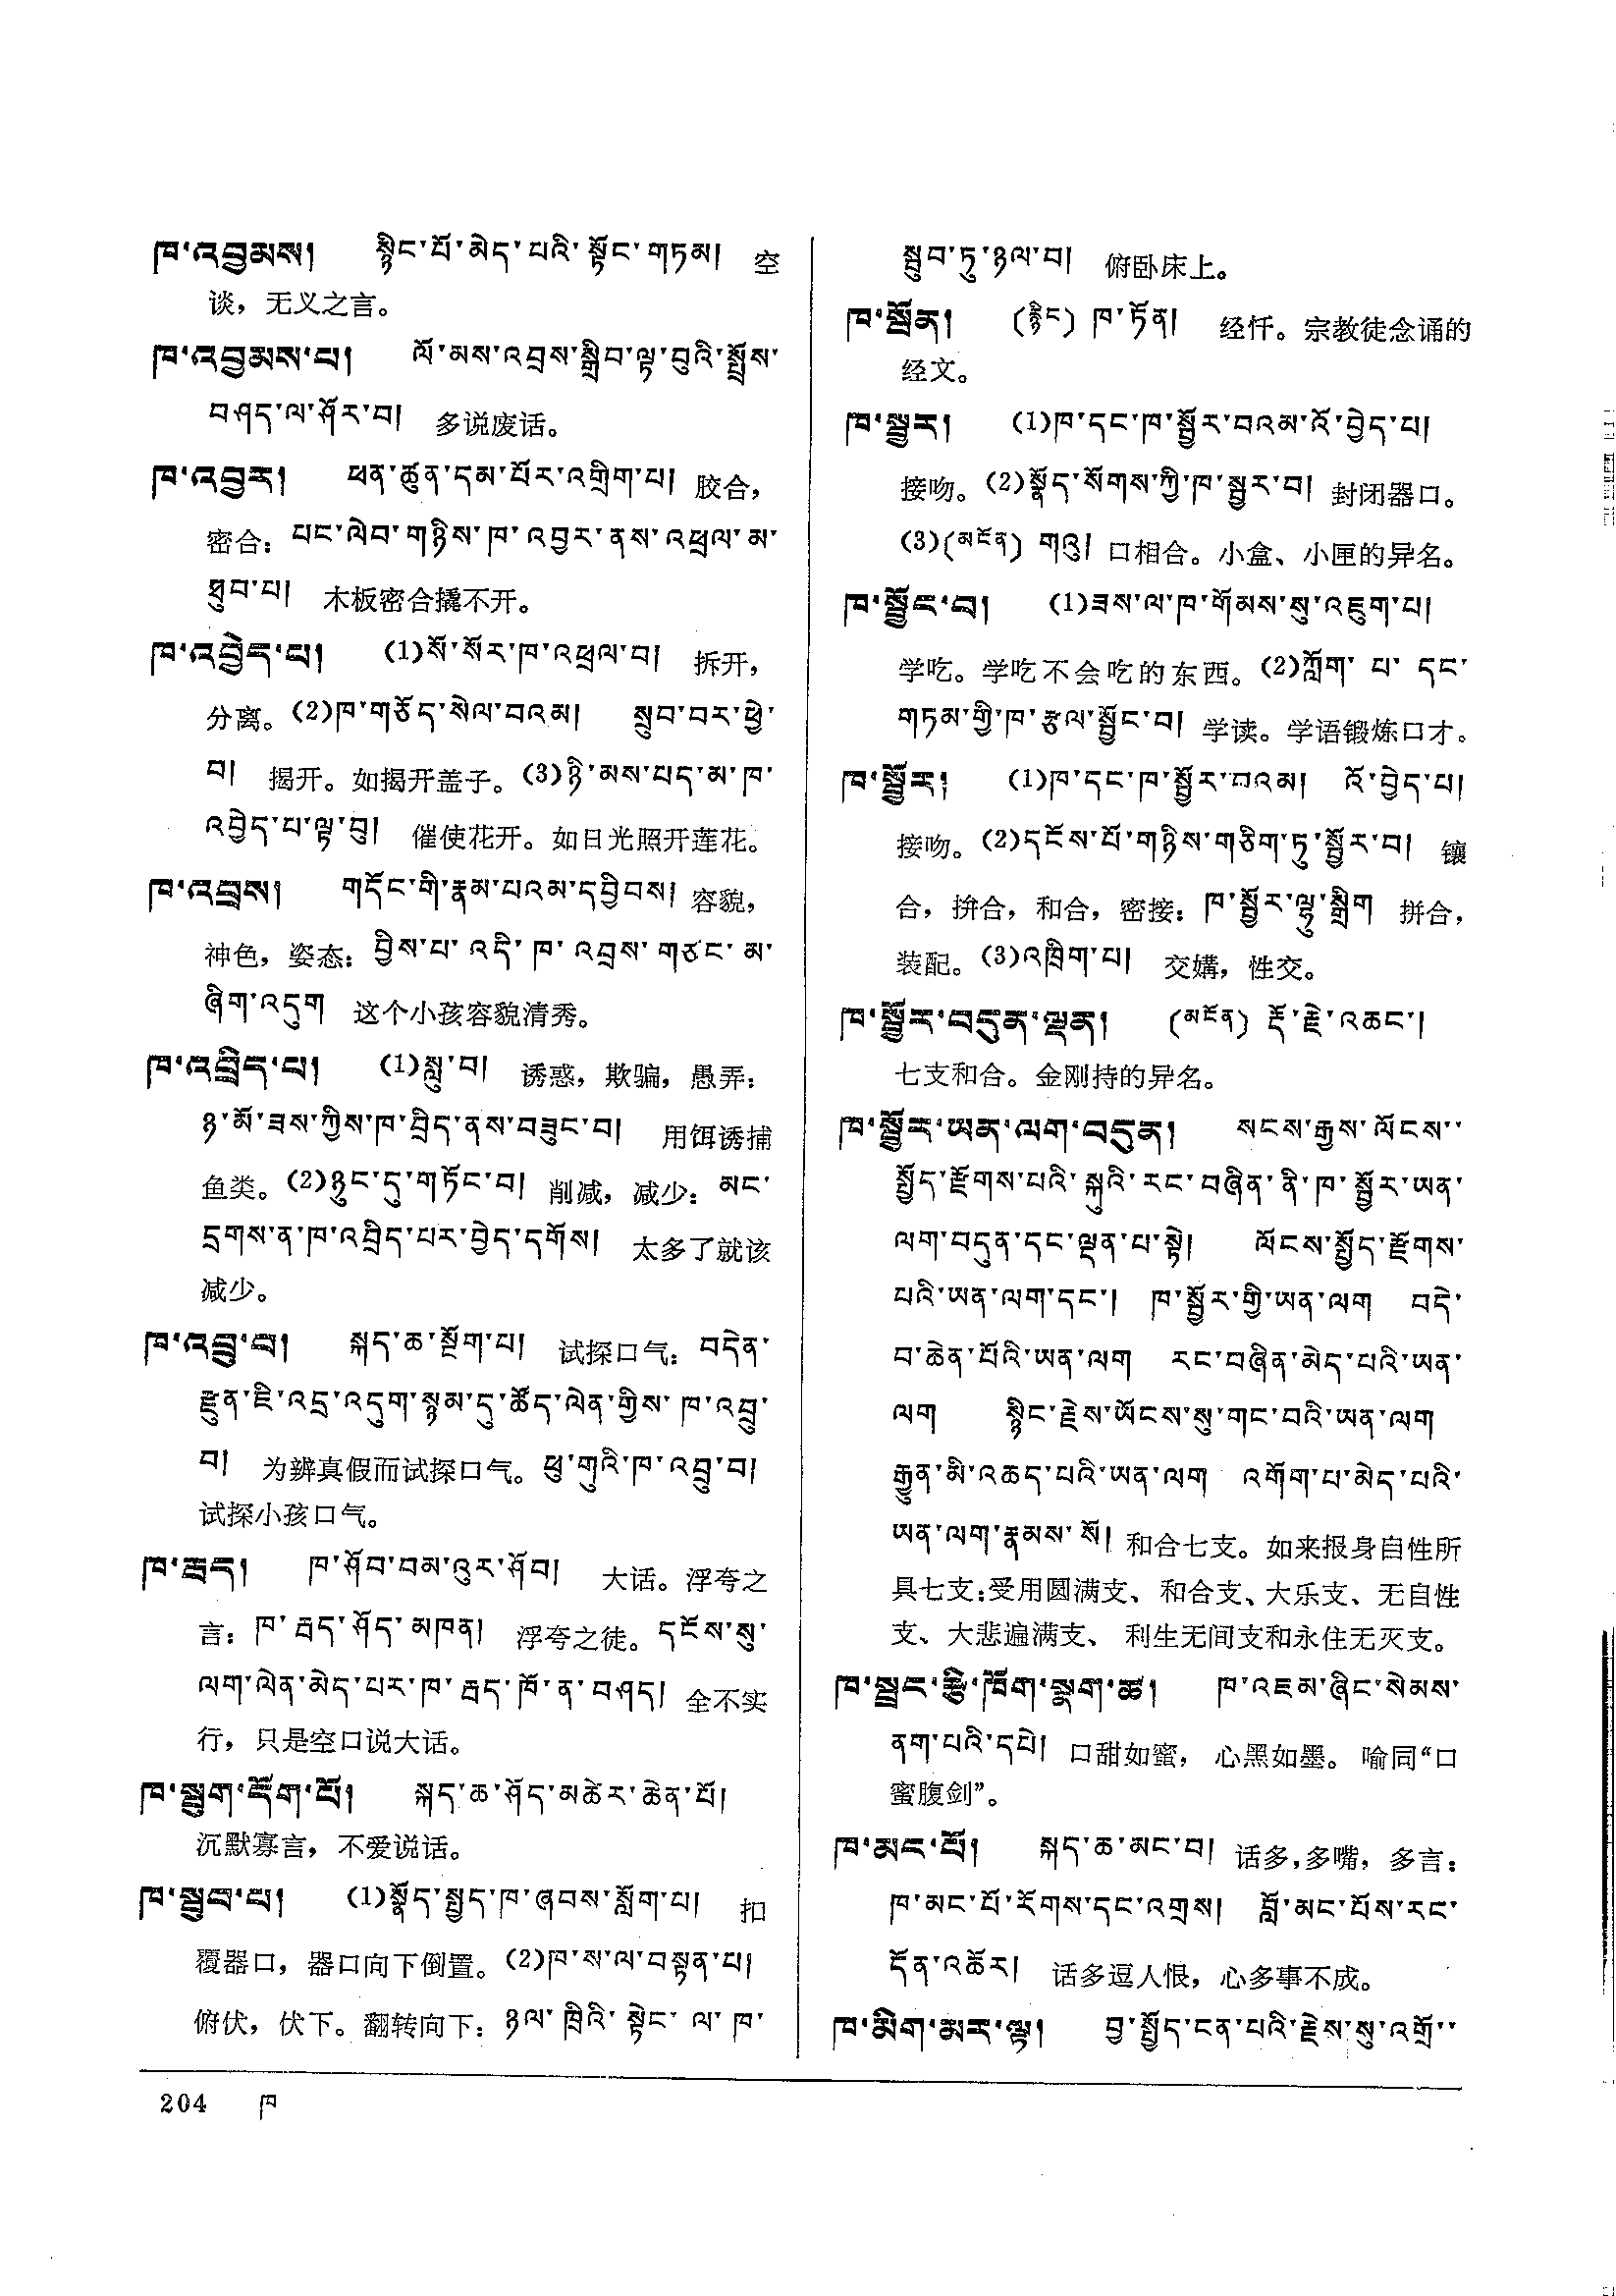 ཁ་འབྱམས། སྙིང་པོ་མེད་པའི་སྟོང་གཏམ། 空
谈，无义之言。
ཁ་འབྱམས་པ། ལོ་མས་འབྲས་སྒྲིབ་ལྟ་བུའི་སྤྲོས་
བཤད་ལ་ཤོར་བ། 多说废话。
ཁ་འབྱར། ཕན་ཚུན་དམ་པོར་འགྲིག་པ། 胶合，
密合：པང་ལེབ་གཉིས་ཁ་འབྱར་ནས་འཕྲལ་མ་
ཐུབ་པ། 木板密合撬不开。
ཁ་འབྱེད་པ། (1)སོ་སོར་ཁ་འཕྲལ་བ། 拆开，
分离。(2)ཁ་གཅོད་སེལ་བའམ། སྲུབ་བར་ཕྱེ་
བ། 揭开。如揭开盖子。(3)ཉི་མས་པད་མ་ཁ་
འབྱེད་པ་ལྟ་བུ། 催使花开。如日光照开莲花。
ཁ་འབྲས། གདོང་གི་རྣམ་པའམ་དབྱིབས། 容貌，
神色，姿态：བྱིས་པ་འདི་ཁ་འབྲས་གཙང་མ་
ཞིག་འདུག 这个小孩容貌清秀。
ཁ་འབྲིད་པ། (1)སླུ་བ། 诱惑，欺骗，愚弄：
ཉ་མོ་ཟས་ཀྱིས་ཁ་བྲིད་ནས་བཟུང་བ། 用饵诱捕
鱼类。(2)ཉུང་དུ་གཏོང་བ། 削减，减少：མང་
དྲགས་ན་ཁ་འབྲིད་པར་བྱེད་དགོས། 太多了就该
减少。
ཁ་འབྲུ་བ། སྐད་ཆ་སྔོག་པ། 试探口气：བདེན་
རྫུན་ཇི་འདྲ་འདུག་སྙམ་དུ་ཚོད་ལེན་གྱིས་ཁ་འབྲུ་
བ། 为辨真假而试探口气。ཕྲུ་གུའི་ཁ་འབྲུ་བ།
试探小孩口气。
ཁ་རྦད། ཁ་ཤོབ་བམ་འུར་ཤོབ། 大话。浮夸之
言：ཁ་རྦད་ཤོད་མཁན། 浮夸之徒。དངོས་སུ་
ལག་ལེན་མེད་པར་ཁ་རྦད་ཁོ་ན་བཤད། 全不实
行，只是空口说大话。
ཁ་སྦུག་དོག་པོ། སྐད་ཆ་ཤོད་མཚེར་ཆེན་པོ།
沉默寡言，不爱说话。
ཁ་སྦུབ་པ། (1)སྣོད་སྤྱད་ཁ་ཞབས་སློག་པ། 扣
覆器口，器口向下倒置。(2)ཁ་ས་ལ་བསྟན་པ།
俯伏，伏下。翻转向下：ཉལ་ཁྲིའི་སྟེང་ལ་ཁ་
སྦུབ་ཏུ་ཉལ་བ། 俯卧床上。
ཁ་སྦྱོན། (རྙིང) ཁ་ཏོན། 经忏。宗教徒念诵的
经文。
ཁ་སྦྱར། (1)ཁ་དང་ཁ་སྦྱོར་བའམ་འོ་བྱེད་པ།
接吻。(2)སྣོད་སོགས་ཀྱི་ཁ་སྦྱར་བ། 封闭器口。
(3)(མངོན) གའུ། 口相合。小盒、小匣的异名。
ཁ་སྦྱོང་བ། (1)ཟས་ལ་ཁ་གོམས་སུ་འཇུག་པ།
学吃。学吃不会吃的东西。(2)ཀློག་པ་དང་
གཏམ་གྱི་ཁ་རྩལ་སྦྱོང་བ། 学读。学语锻炼口才。
ཁ་སྦྱོར། (1)ཁ་དང་ཁ་སྦྱོར་བའམ། འོ་བྱེད་པ།
接吻。(2)དངོས་པོ་གཉིས་གཅིག་ཏུ་སྦྱོར་བ། 镶
合，拚合，和合，密接：ཁ་སྦྱོར་ལྷུ་སྒྲིག 拼合，
装配。(3)འཁྲིག་པ། 交媾，性交。
ཁ་སྦྱོར་བདུན་ལྡན། (མངོན) རྡོ་རྗེ་འཆང་།
七支和合。金刚持的异名。
ཁ་སྦྱོར་ཡན་ལག་བདུན། སངས་རྒྱས་ལོངས་་
སྤྱོད་རྫོགས་པའི་སྐུའི་རང་བཞིན་ནི་ཁ་སྦྱོར་ཡན་
ལག་བདུན་དང་ལྡན་པ་སྟེ། ལོངས་སྤྱོད་རྫོགས་
པའི་ཡན་ལག་དང་། ཁ་སྦྱོར་གྱི་ཡན་ལག བདེ་
བ་ཆེན་པོའི་ཡན་ལག རང་བཞིན་མེད་པའི་ཡན་
ལག སྙིང་རྗེས་ཡོངས་སུ་གང་བའི་ཡན་ལག
རྒྱུན་མི་འཆད་པའི་ཡན་ལག འགོག་པ་མེད་པའི་
ཡན་ལག་རྣམས་སོ། 和合七支。如来报身自性所
具七支：受用圆满支、和合支、大乐支、无自性
支、大悲遍满支、利生无间支和永住无灭支。
ཁ་སྦྲང་རྩི་ཁོག་སྣག་ཚ། ཁ་འཇམ་ཞིང་སེམས་
ནག་པའི་དཔེ། 口甜如蜜，心黑如墨。喻同“口
蜜腹剑”。
ཁ་མང་པོ། སྐད་ཆ་མང་བ། 话多，多嘴，多言：
ཁ་མང་པོ་རོགས་དང་འགྲས། བློ་མང་པོས་རང་
དོན་འཆོར། 话多逗人恨，心多事不成。
ཁ་མིག་མར་ལྟ། བྱ་སྤྱོད་ངན་པའི་རྗེས་སུ་འགྲོ་་
204 ཁ